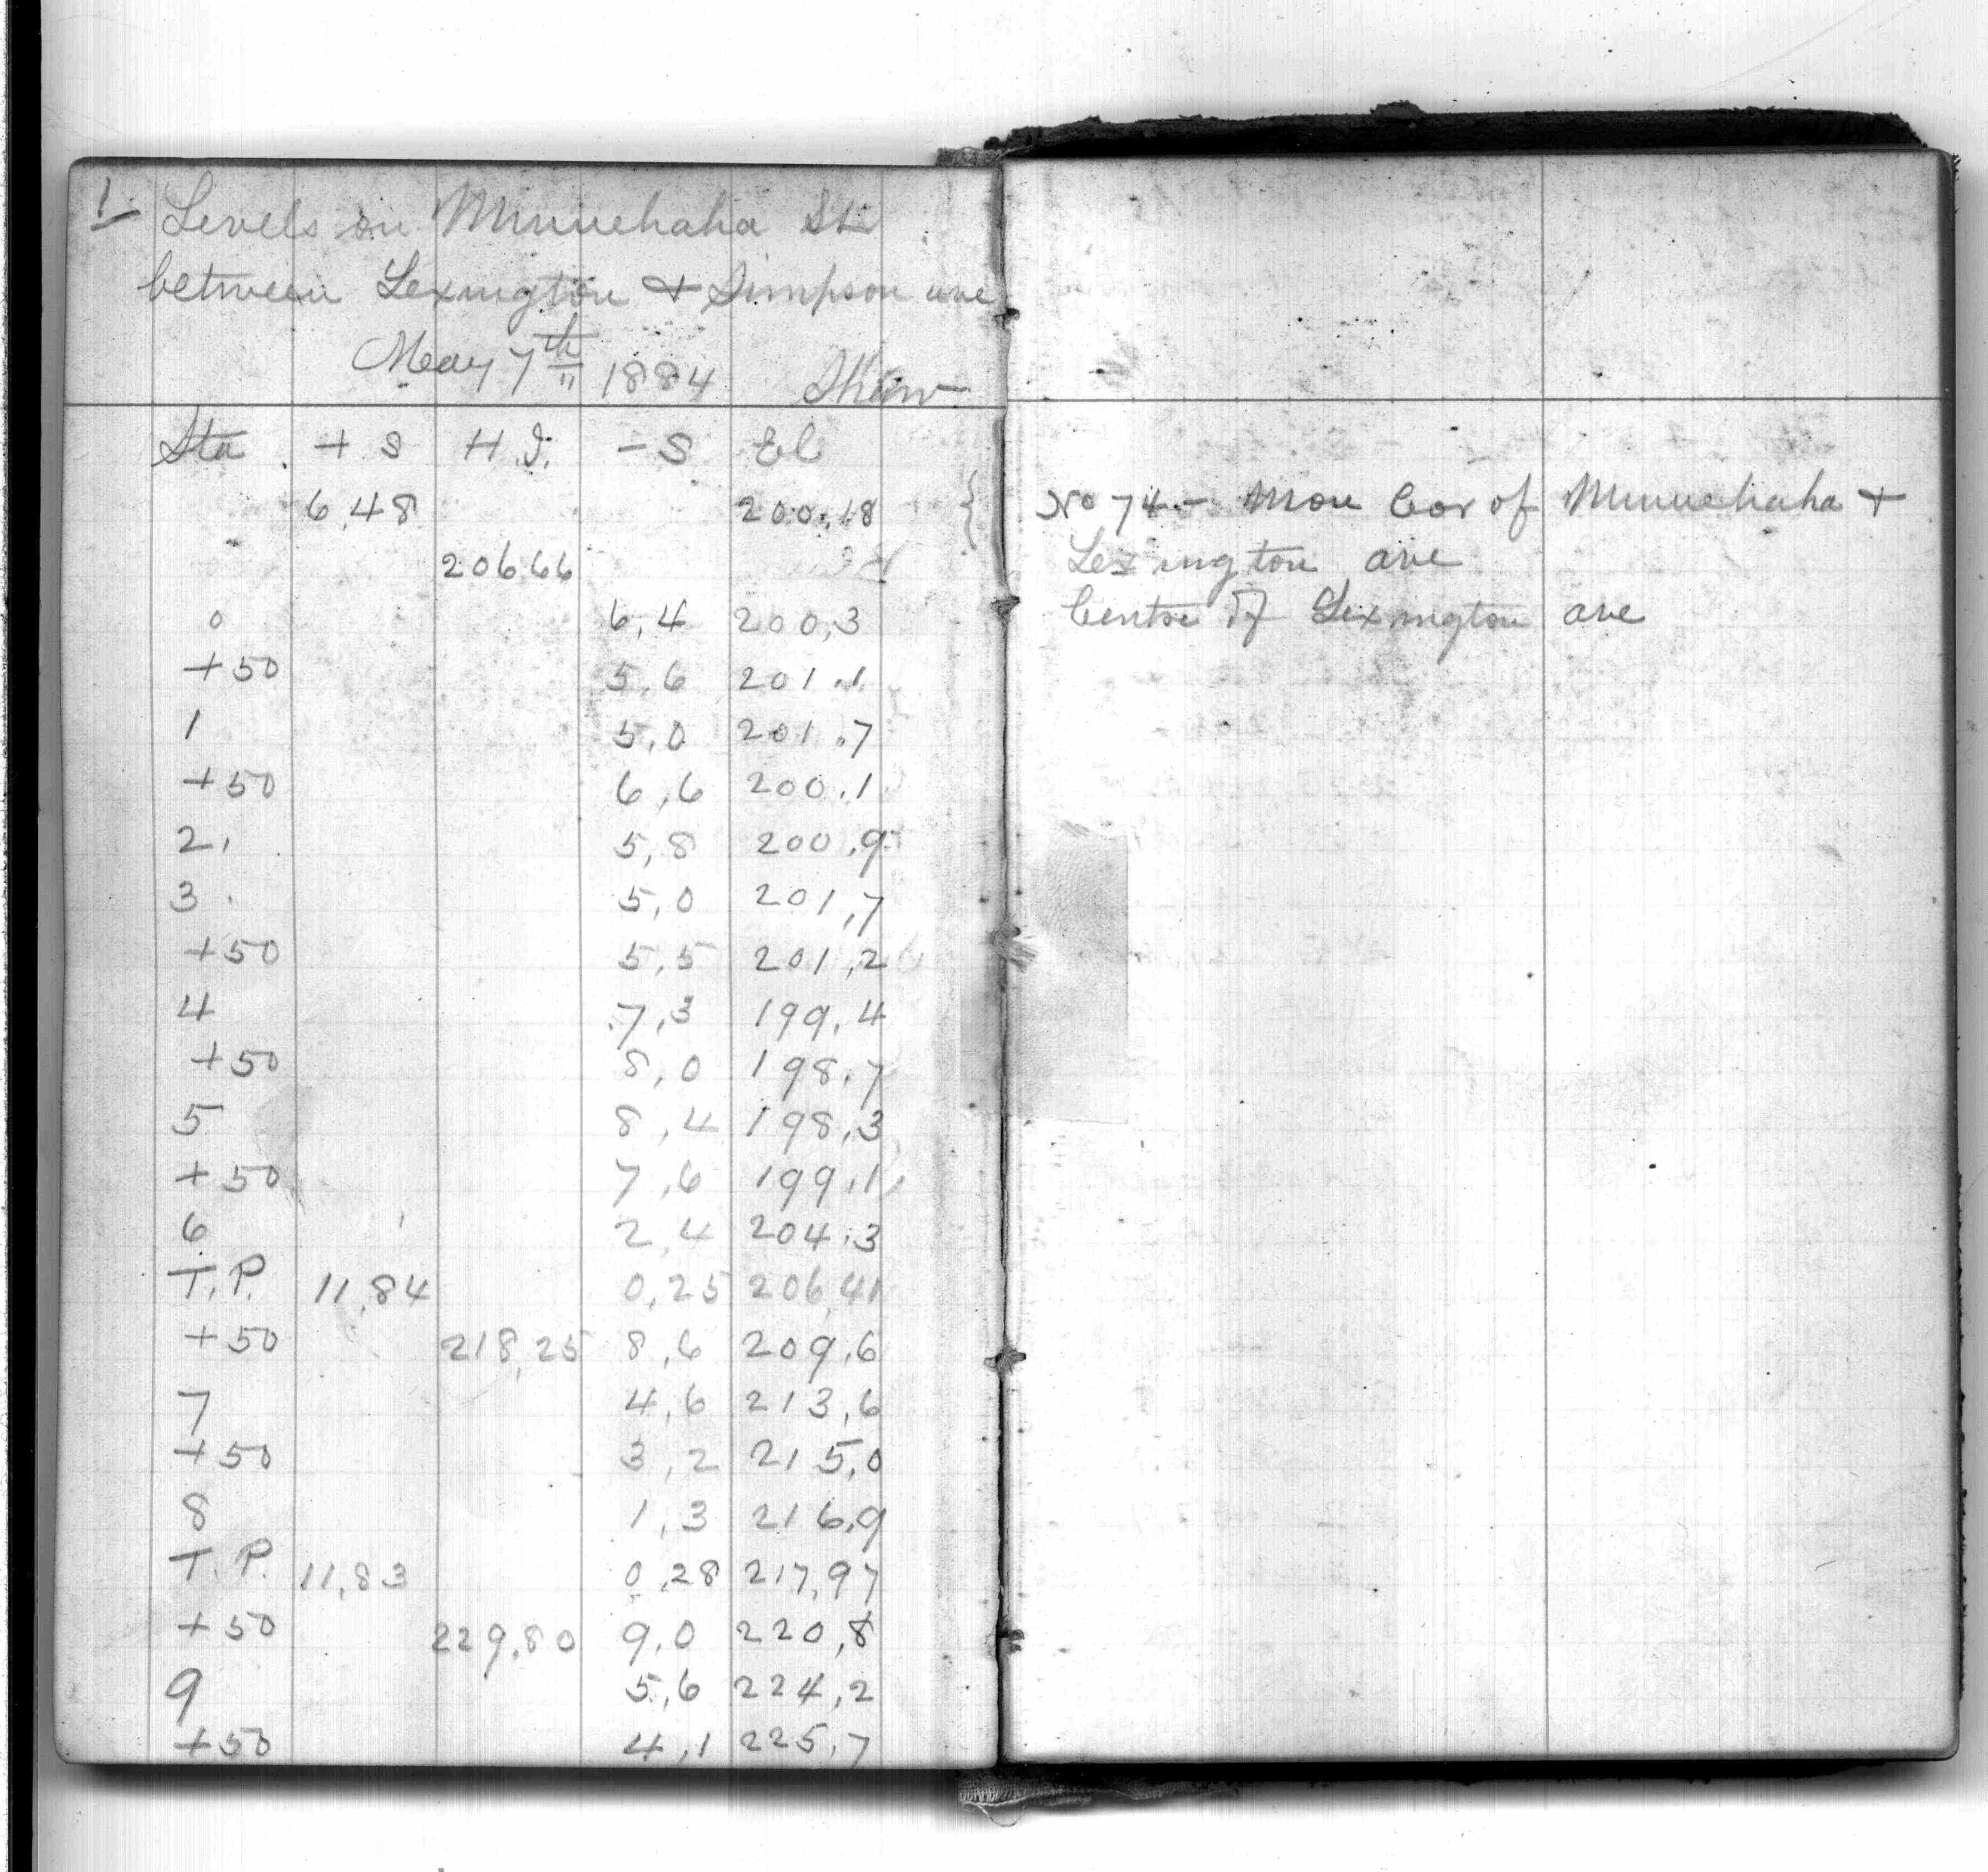 1
Levels on Minnehaha St.
between Lexington + Simpson ave
May 7th 1884 Shaw
Sta + S H.I. - S El
6,48 200,18
206.66
0 6,4 200,3
+50 5,6 201.1
1 5,0 201.7
+50 6,6 200.1
2. 5,8 200.9
3. 5,0 201,7
+50 5,5 201,2
4 7,3 199.4
+50 8,0 198.7
5 8,4 198,3
+50 7,6 199.1
6 2,4 204.3
T.P. 11,84 0,25 206,41
+50 218,25 8,6 209.6
7 4,6 213,6
+50 3,2 215,0
8 1,3 216,9
T.P. 11,83 0,28 217,97
+50 229,80 9,0 220,8
9 5,6 224,2
+50 4,1 225,7
No 74 - Mon Cor of Minnehaha +
Lexington ave
Centre of Lexington ave